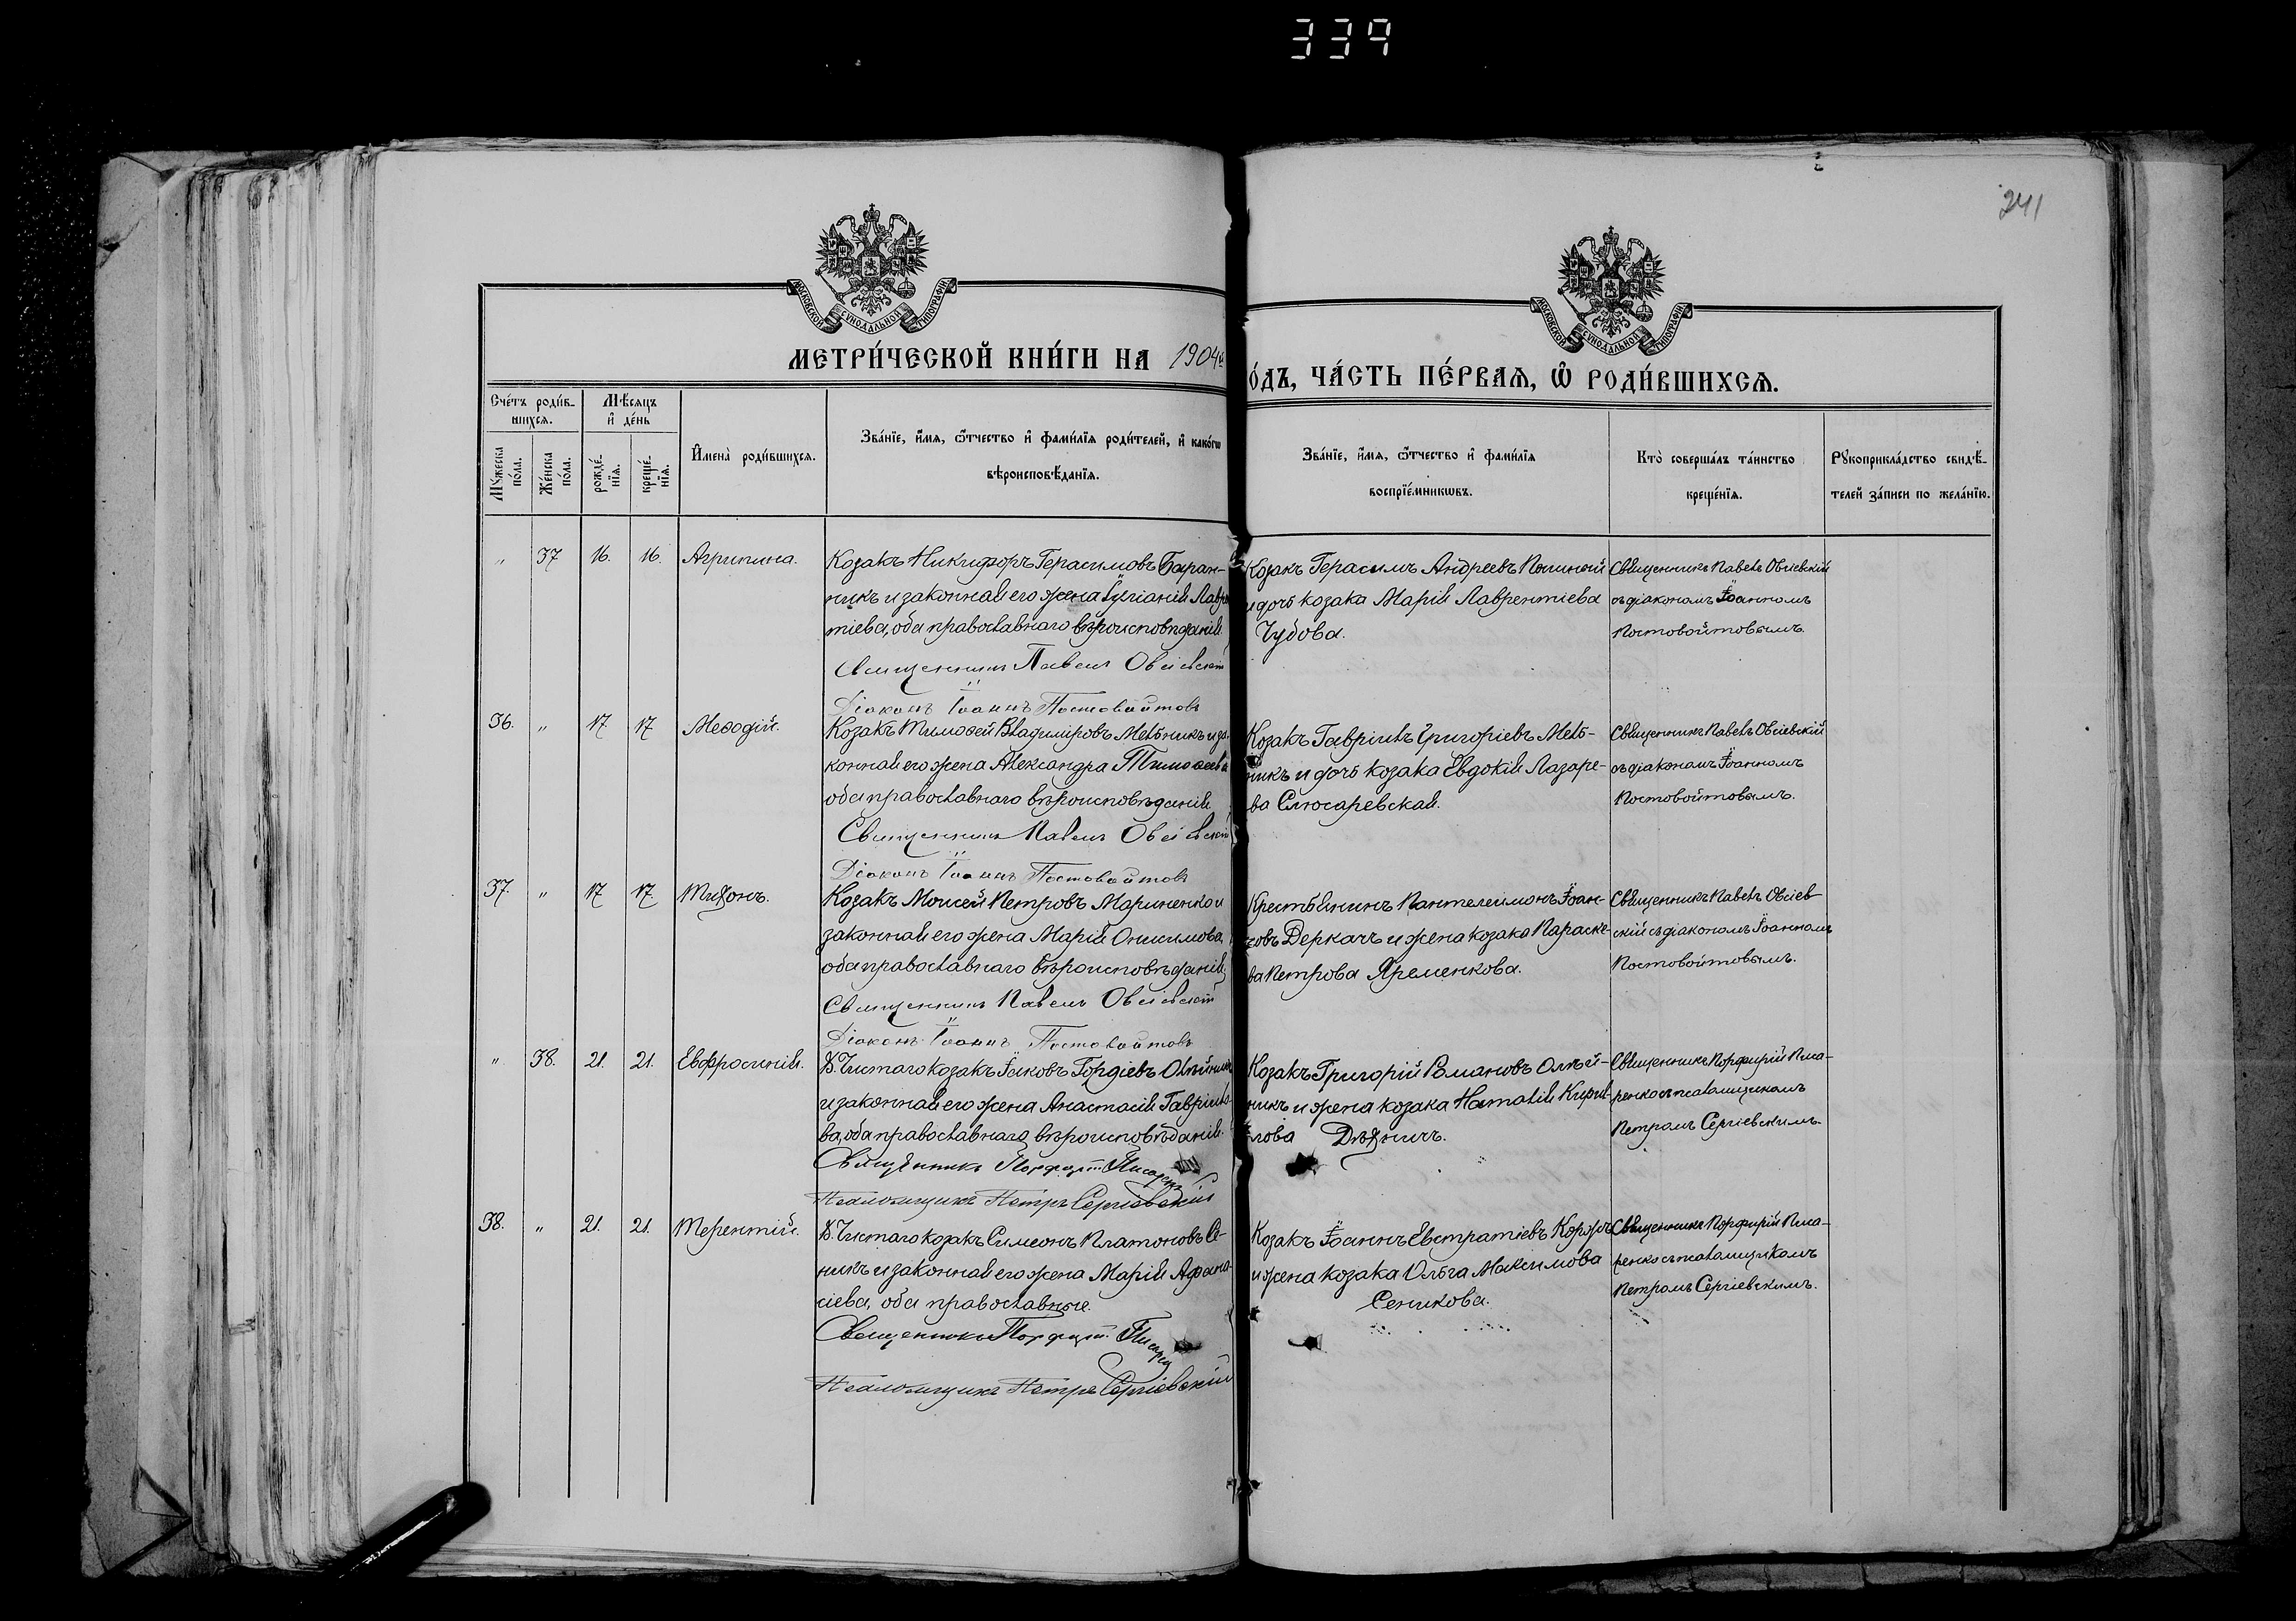 339
241
МОСКОВСКОЙ СУНОДАЛЬНОЙ ТИПОГРАФІИ
МОСКОВСКОЙ СУНОДАЛЬНОЙ ТИПОГРАФІИ
МЕТРИ́ЧЕСКОЙ КНИ́ГИ НА 1904й
О́ДЪ, ЧА́СТЬ ПЕ́РВАѦ, Ѡ҆ РОДИ́ВШИХСѦ.
Сче́тъ роди́в-
шихсѧ.
Мѣ́сѧцъ
и҆ де́нь
Мꙋ́жеска по́ла.
Же́нска по́ла.
рожде́-
нїѧ.
креще́-
нїѧ.
И҆мена̀ роди́вшихсѧ.
Зва́нїе, и҆́мѧ, ѻ҆́тчество и҆ фами́лїѧ роди́телей, и҆ како́гѡ
вѣроисповѣ́данїѧ.
Зва́нїе, и҆́мѧ, ѻ҆́тчество и҆ фами́лїѧ
воспрїе́мникѡвъ.
Кто̀ соверша́лъ та́инство
креще́нїѧ.
Рꙋкоприкла́дство свидѣ́-
телей за́писи по жела́нїю.
„ 37 16. 16. Агрипина.
Козакъ Никифоръ Герасимовъ Баран-
никъ и законная его жена Іуліанія Лавре
тіева, оба православнаго вѣроисповѣданія
Священникъ Павелъ Овсіевскій
Діаконъ Іоаннъ Постовойтовъ
Козакъ Герасимъ Андреевъ
и дочь козака Марія Лаврентіева
Чубова.
Священникъ Павелъ Овсіевскій
съ діакономъ Іоанномъ
Постовойтовымъ.
36. „ 17 17 Меѳодій.
Козакъ Тимоѳей Владиміровъ Мельникъ и за-
конная его жена Александра Тимоѳеева
оба православнаго вѣроисповѣданія
Священникъ Павелъ Овсіевскій
Діаконъ Іоаннъ Постовойтовъ
Козакъ Гавріилъ Григоріевъ Мель-
никъ и дочь козака Евдокія Лазаре-
ва Слюсаревская.
Священникъ Павелъ Овсіевскій
съ діакономъ Іоанномъ
Постовойтовымъ.
37. „ 17 17. Тихонъ.
Козакъ Моисей Петровъ Мариненко и
законная его жена Марія Онисимова,
оба православнаго вѣроисповѣданія,
Священникъ Павелъ Овсіевскій
Діаконъ Іоаннъ Постовойтовъ
Крестьянинъ Пантелеимонъ Іоан-
новъ Деркачъ и жена козака Параске-
ва Петрова Яременкова.
Священникъ Павелъ Овсіев-
скій съ діакономъ Іоанномъ
Постовойтовымъ.
„ 38. 21. 21. Евфросинія.
Х. Чистаго козакъ Іаковъ Гордіевъ Олѣйникъ
и законная его жена Анастасія Гавріило-
ва, оба православнаго вѣроисповѣданія.
Священникъ Порфирій Писаренко
Псаломщикъ Петръ Сергіевскій
Козакъ Григорій Романовъ Олѣй-
никъ и жена козака Наталія Кирил-
лова
Священникъ Порфирій Писа-
ренко съ псаломщикомъ
Петромъ Сергіевскимъ.
38. „ 21. 21. Терентій.
Х. Чистаго козакъ Симеонъ Платоновъ Се-
никъ и законная его жена Марія Афана-
сіева, оба православные.
Священникъ Порфирій Писаренко
Псаломщикъ Петръ Сергіевскій
Козакъ Іоаннъ Евстратіевъ
и жена козака Ольга Максимова
Сеникова.
Священникъ Порфирій Писа-
ренко съ псаломщикомъ
Петромъ Сергіевскимъ.